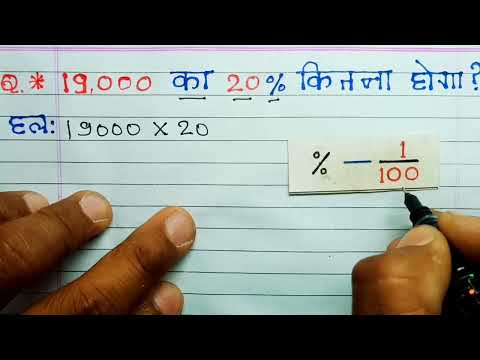 Q.* 19,000 का 20% कितना होगा?
हल: 19000 X 20
% — 1/100